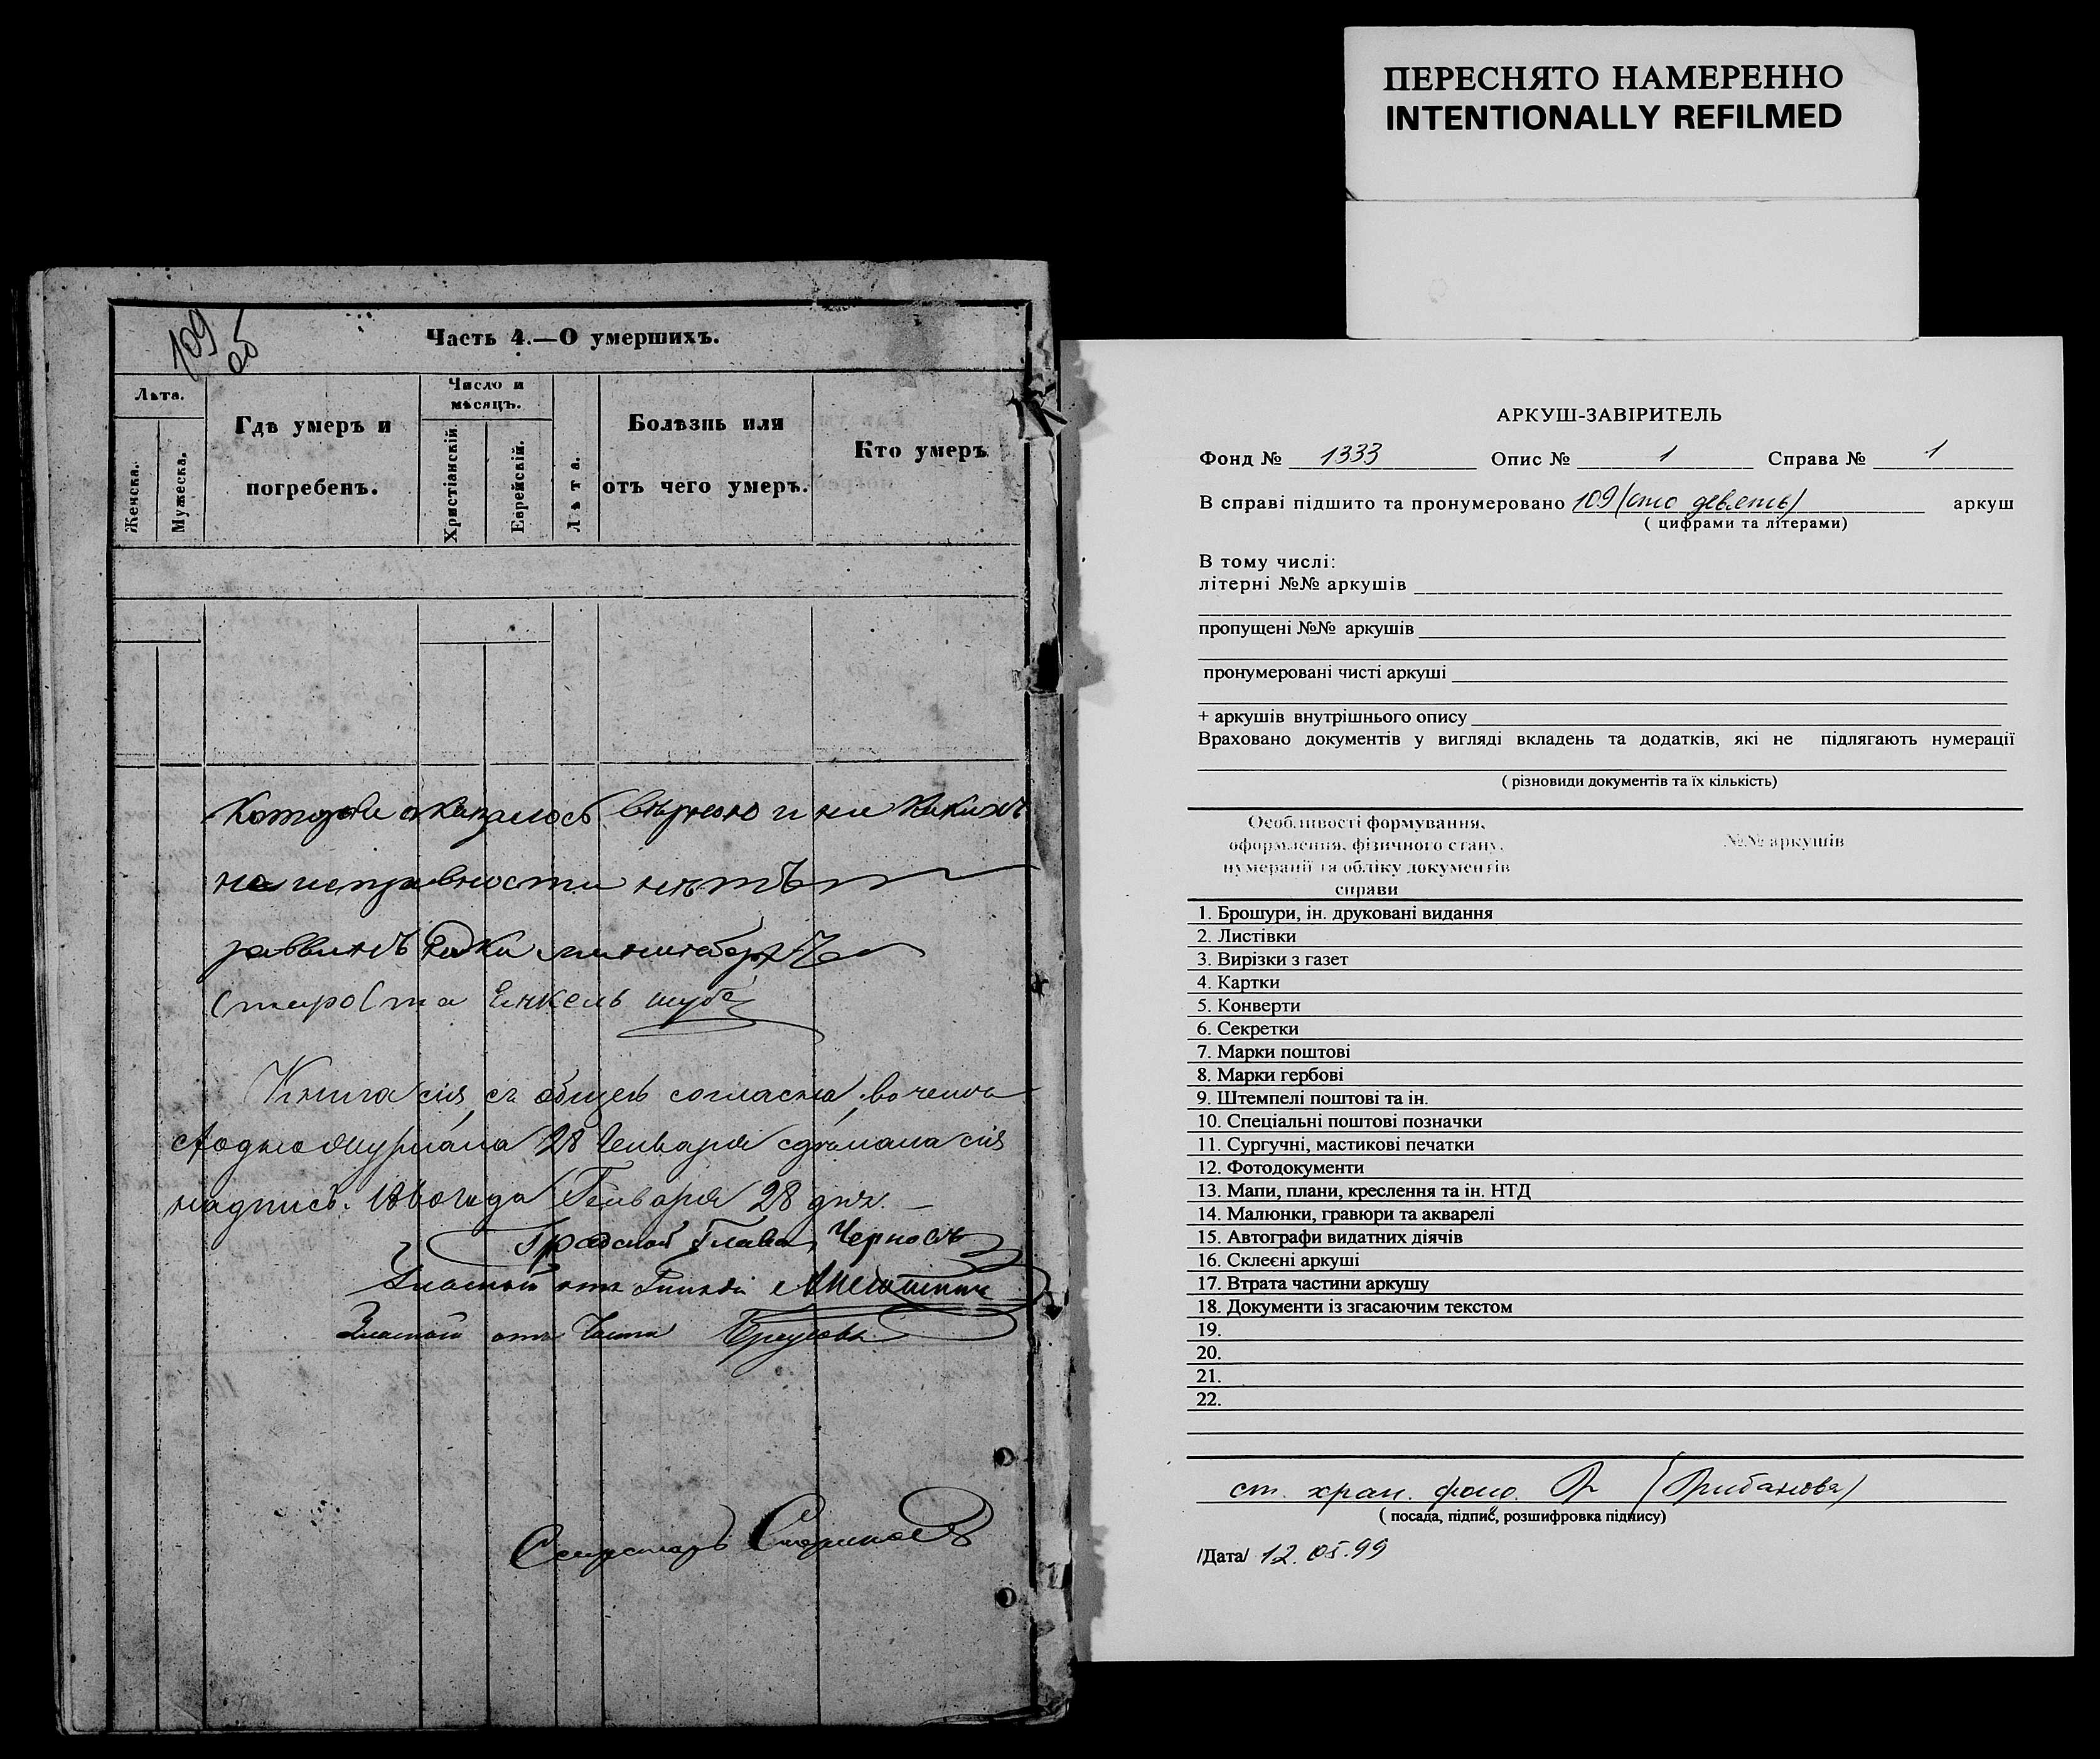 ПЕРЕСНЯТО НАМЕРЕННО
INTENTIONALLY REFILMED
109
об
Часть 4.—О умершихъ.
Лѣта.
Женска.
Мужеска.
Гдѣ умеръ и
погребенъ.
Число и
мѣсяцъ.
Христіанскій.
Еврейскій.
Лѣта.
Болѣзнь или
отъ чего умеръ.
Кто умеръ
оказалось вѣрною и ни какихъ
неисправности нѣтъ
раввинъ
Староста Енкель шуба
Книга сія съ общею согласна, во чемъ
28 Генваря сдѣлана сія
надпись. года Генваря 28 дня.
Градской Глава
Гласный отъ
Гласный отъ
Секретарь
АРКУШ-ЗАВІРИТЕЛЬ
Фонд № 1333 Опис № 1 Справа № 1
В справі підшито та пронумеровано 109 (сто девять) аркуш
( цифрами та літерами)
В тому числі:
літерні №№ аркушів
пропущені №№ аркушів
пронумеровані чисті аркуші
+ аркушів внутрішнього опису
Враховано документів у вигляді вкладень та додатків, які не підлягають нумерації
( різновиди документів та їх кількість)
Особливості формування,
оформлення, фізичного стану,
нумерації та обліку документів
справи
№№ аркушів
1. Брошури, ін. друковані видання
2. Листівки
3. Вирізки з газет
4. Картки
5. Конверти
6. Секретки
7. Марки поштові
8. Марки гербові
9. Штемпелі поштові та ін.
10. Спеціальні поштові позначки
11. Сургучні, мастикові печатки
12. Фотодокументи
13. Мапи, плани, креслення та ін. НТД
14. Малюнки, гравюри та акварелі
15. Автографи видатних діячів
16. Склеєні аркуші
17. Втрата частини аркушу
18. Документи із згасаючим текстом
19.
20.
21.
22.
ст. хран. фонд.
( посада, підпис, розшифровка підпису)
/Дата/ 12.05.99